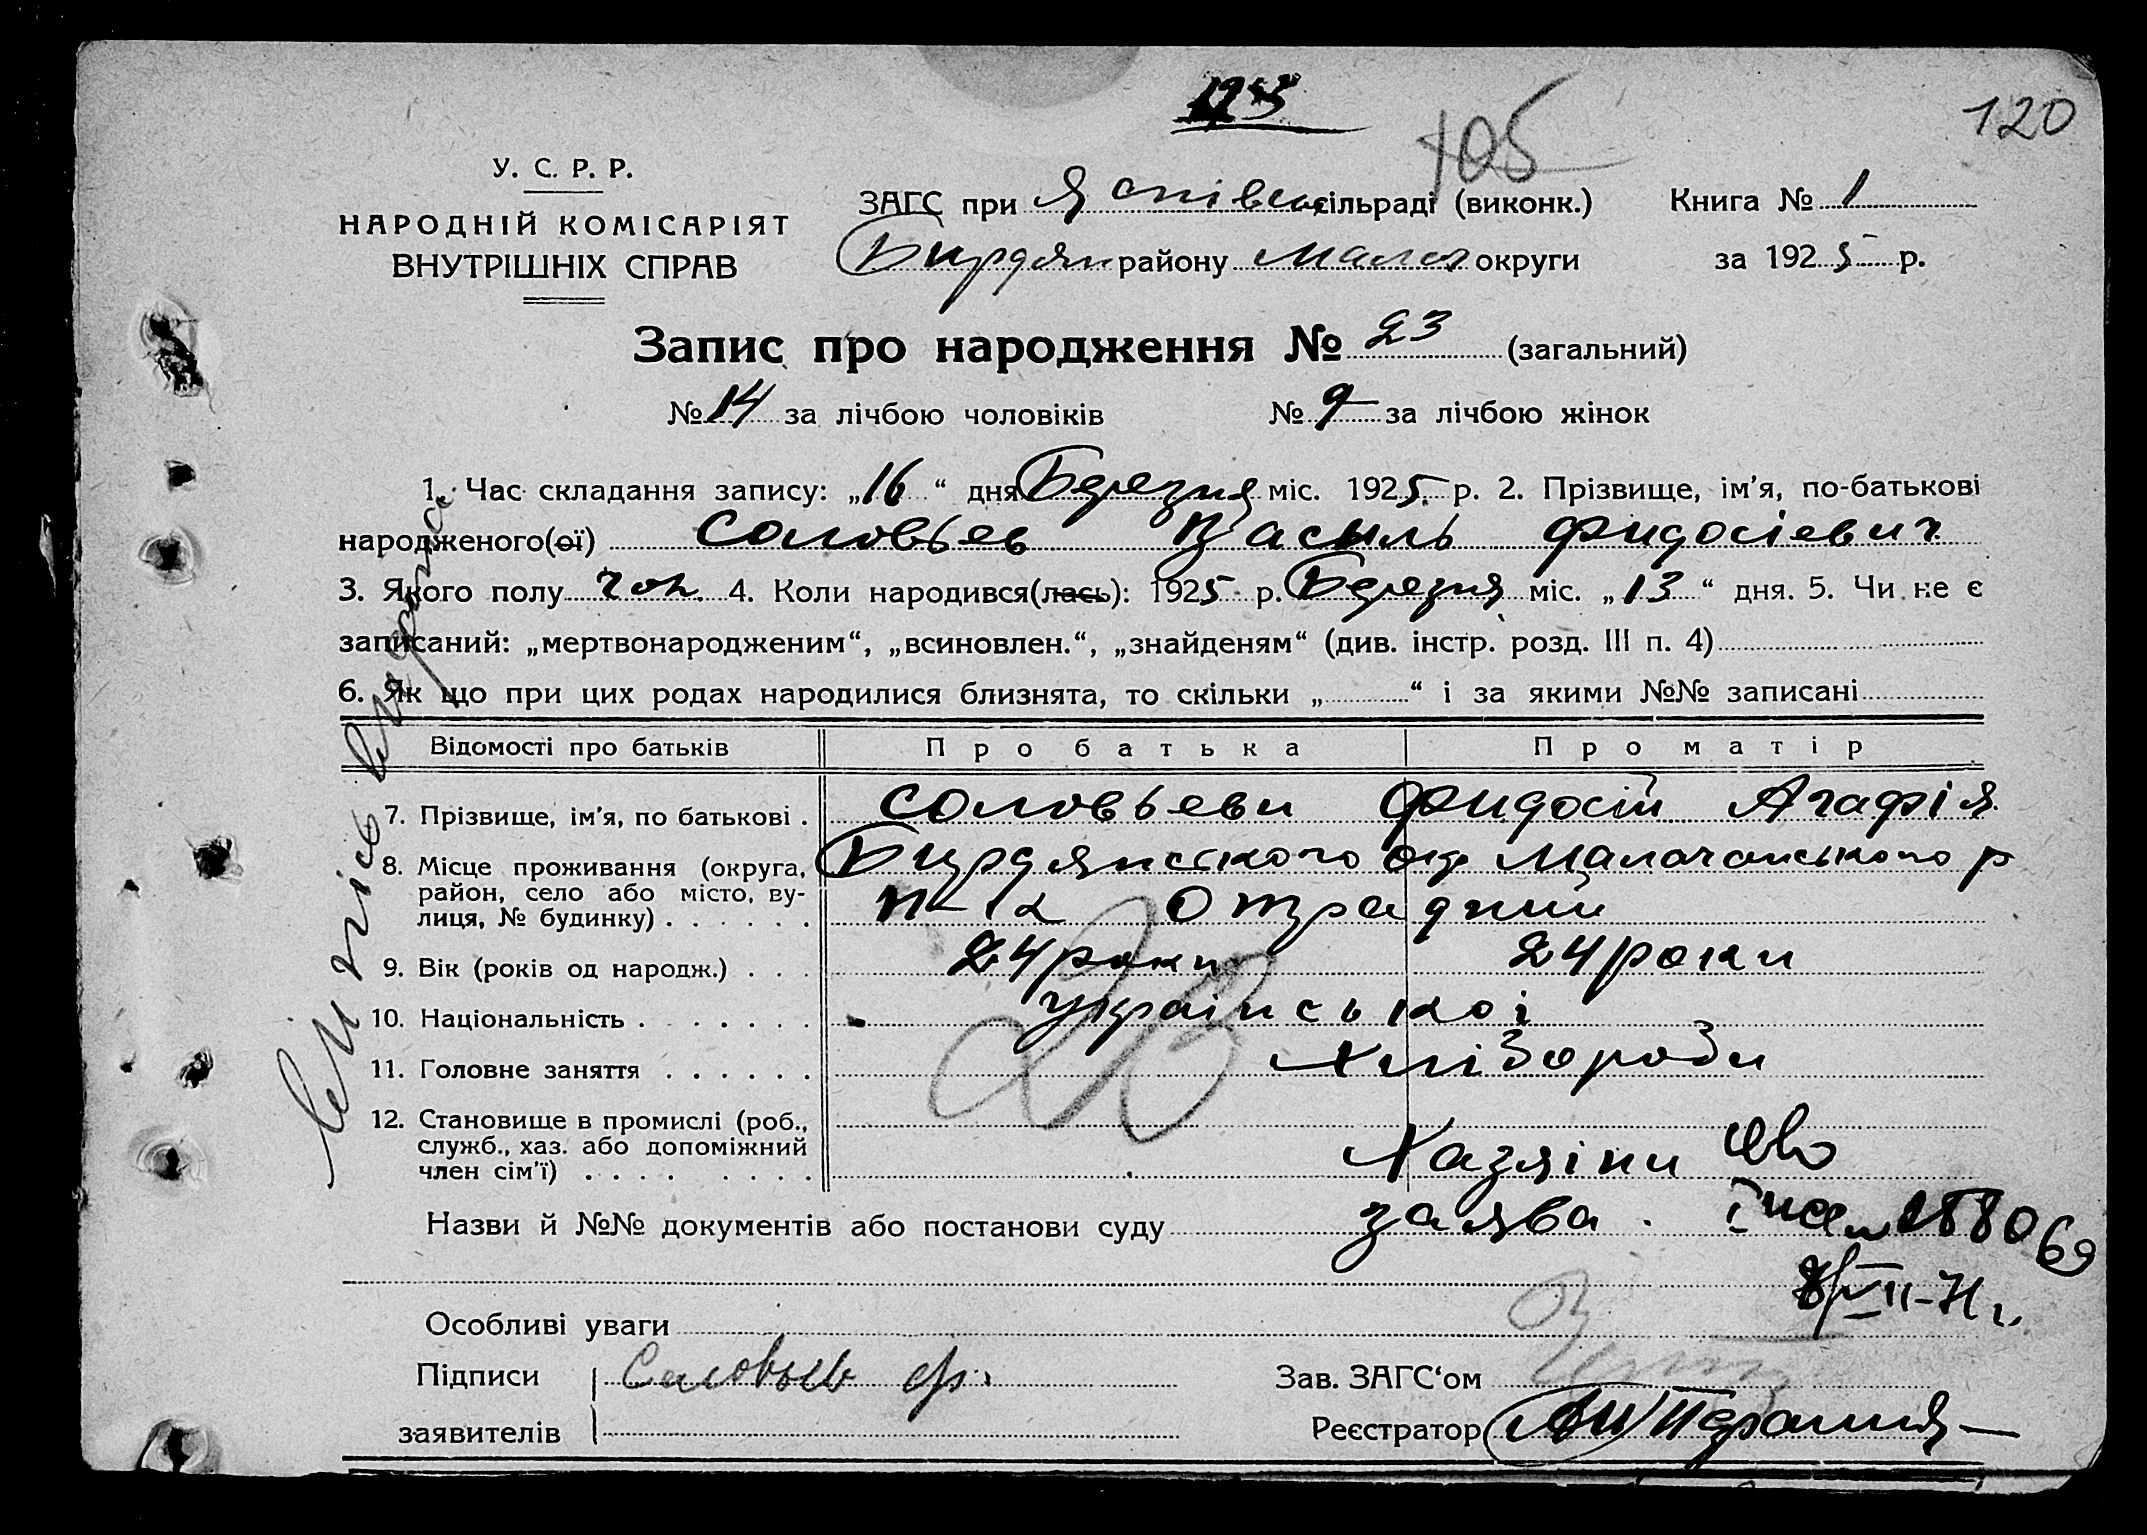 105
120
У. С. Р. Р.
НАРОДНІЙ КОМІСАРІЯТ
ВНУТРІШНІХ СПРАВ
ЗАГС при сільраді (виконк.)
Бирдян району Молоч округи
Книга № 1
за 1925 р.
Запис про народження № 23 (загальний)
№ 14 за лічбою чоловіків № 9 за лічбою жінок
1. Час складання запису: „16“ дня Березня міс. 1925 р. 2. Прізвище, ім'я, по-батькові
народженого(ої) Соловьев Василь Фидосієвич
3. Якого полу чол. 4. Коли народився(лась): 1925 р. Березня міс. „13“ дня. 5. Чи не є
записаний: „мертвонародженим“, „всиновлен.“, „знайденям“ (див. інстр. розд. III п. 4)
6. Як що при цих родах народилися близнята, то скільки „ “ і за якими №№ записані
Відомості про батьків Про батька Про матір
7. Прізвище, ім'я, по батькові . Соловьеви Фидосій Агафія
8. Місце проживання (округа, район, село або місто, вулиця, № будинку) Бирдянського Малочанського р
Отрадний
9. Вік (років од народж.) . . . 24 роки 24 роки
10. Національність . . . . . . . української
11. Головне заняття . . . . . . Хлібороби
12. Становище в промислі (роб., служб., хаз. або допоміжний член сім'ї) . . . . Хазяіни
23
Назви й №№ документів або постанови суду заява
Особливі уваги
Підписи Соловьев Ф.
заявителів
Зав. ЗАГС'ом
Реєстратор